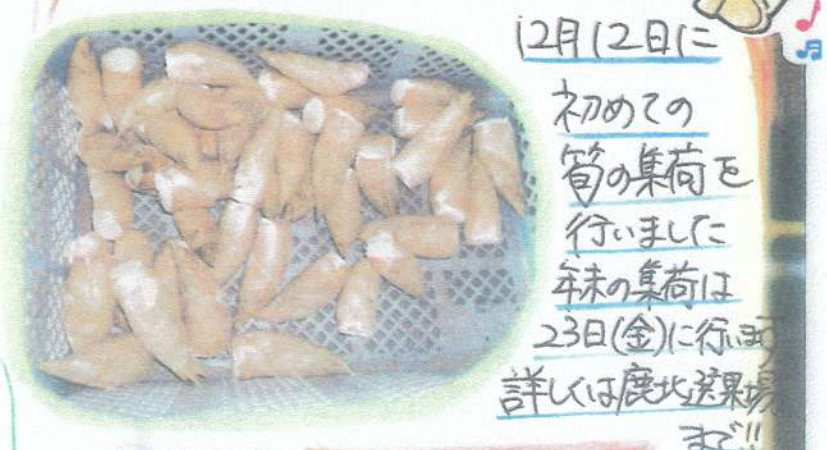 12月12日に
初めての
筍の集荷を
行いました
年末の集荷は
23日(金)に行います
詳しくは鹿北選果場
まで!!